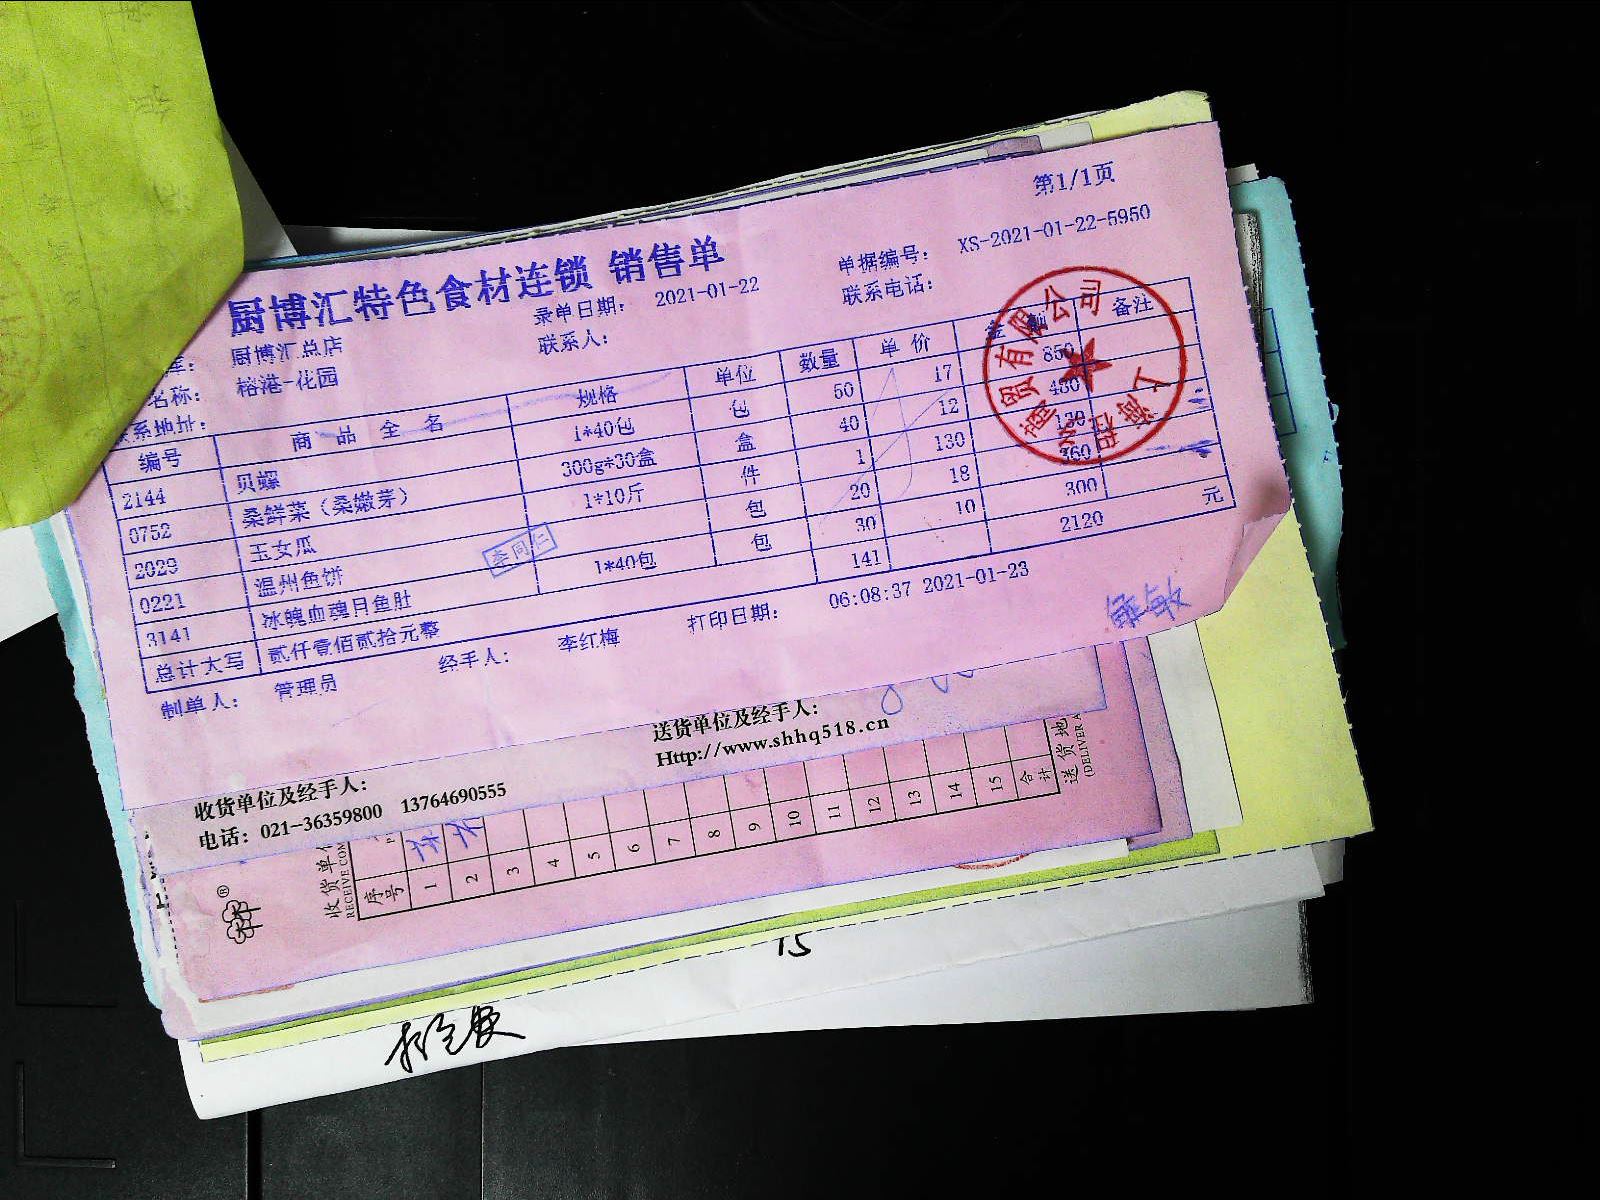 第1/1页
厨博汇特色食材连锁 销售单
库: 厨博汇总店 录单日期: 2021-01-22 单据编号: XS-2021-01-22-5950
名称: 榕港-花园 联系人: 联系电话:
系地址:
编号 商品全名 规格 单位 数量 单价 金额 备注
2144 贝螺 1*40包 包 50 17 850
0752 桑鲜菜（桑嫩芽） 300g*30盒 盒 40 12 480
2029 玉女瓜 1*10斤 件 1 130 130
0221 温州鱼饼 包 20 18 360
3141 冰魄血魂月鱼肚 1*40包 包 30 10 300
总计大写 贰仟壹佰贰拾元整 141 2120 元
制单人: 管理员 经手人: 李红梅 打印日期: 06:08:37 2021-01-23
李同仁
有限公司
收货单位及经手人: 送货单位及经手人:
电话: 021-36359800 13764690555 Http://www.shhq518.cn
收货单位
RECEIVE COM
序号 1 2 3 4 5 6 7 8 9 10 11 12 13 14 15 合计
送货地
(DELIVER A
15